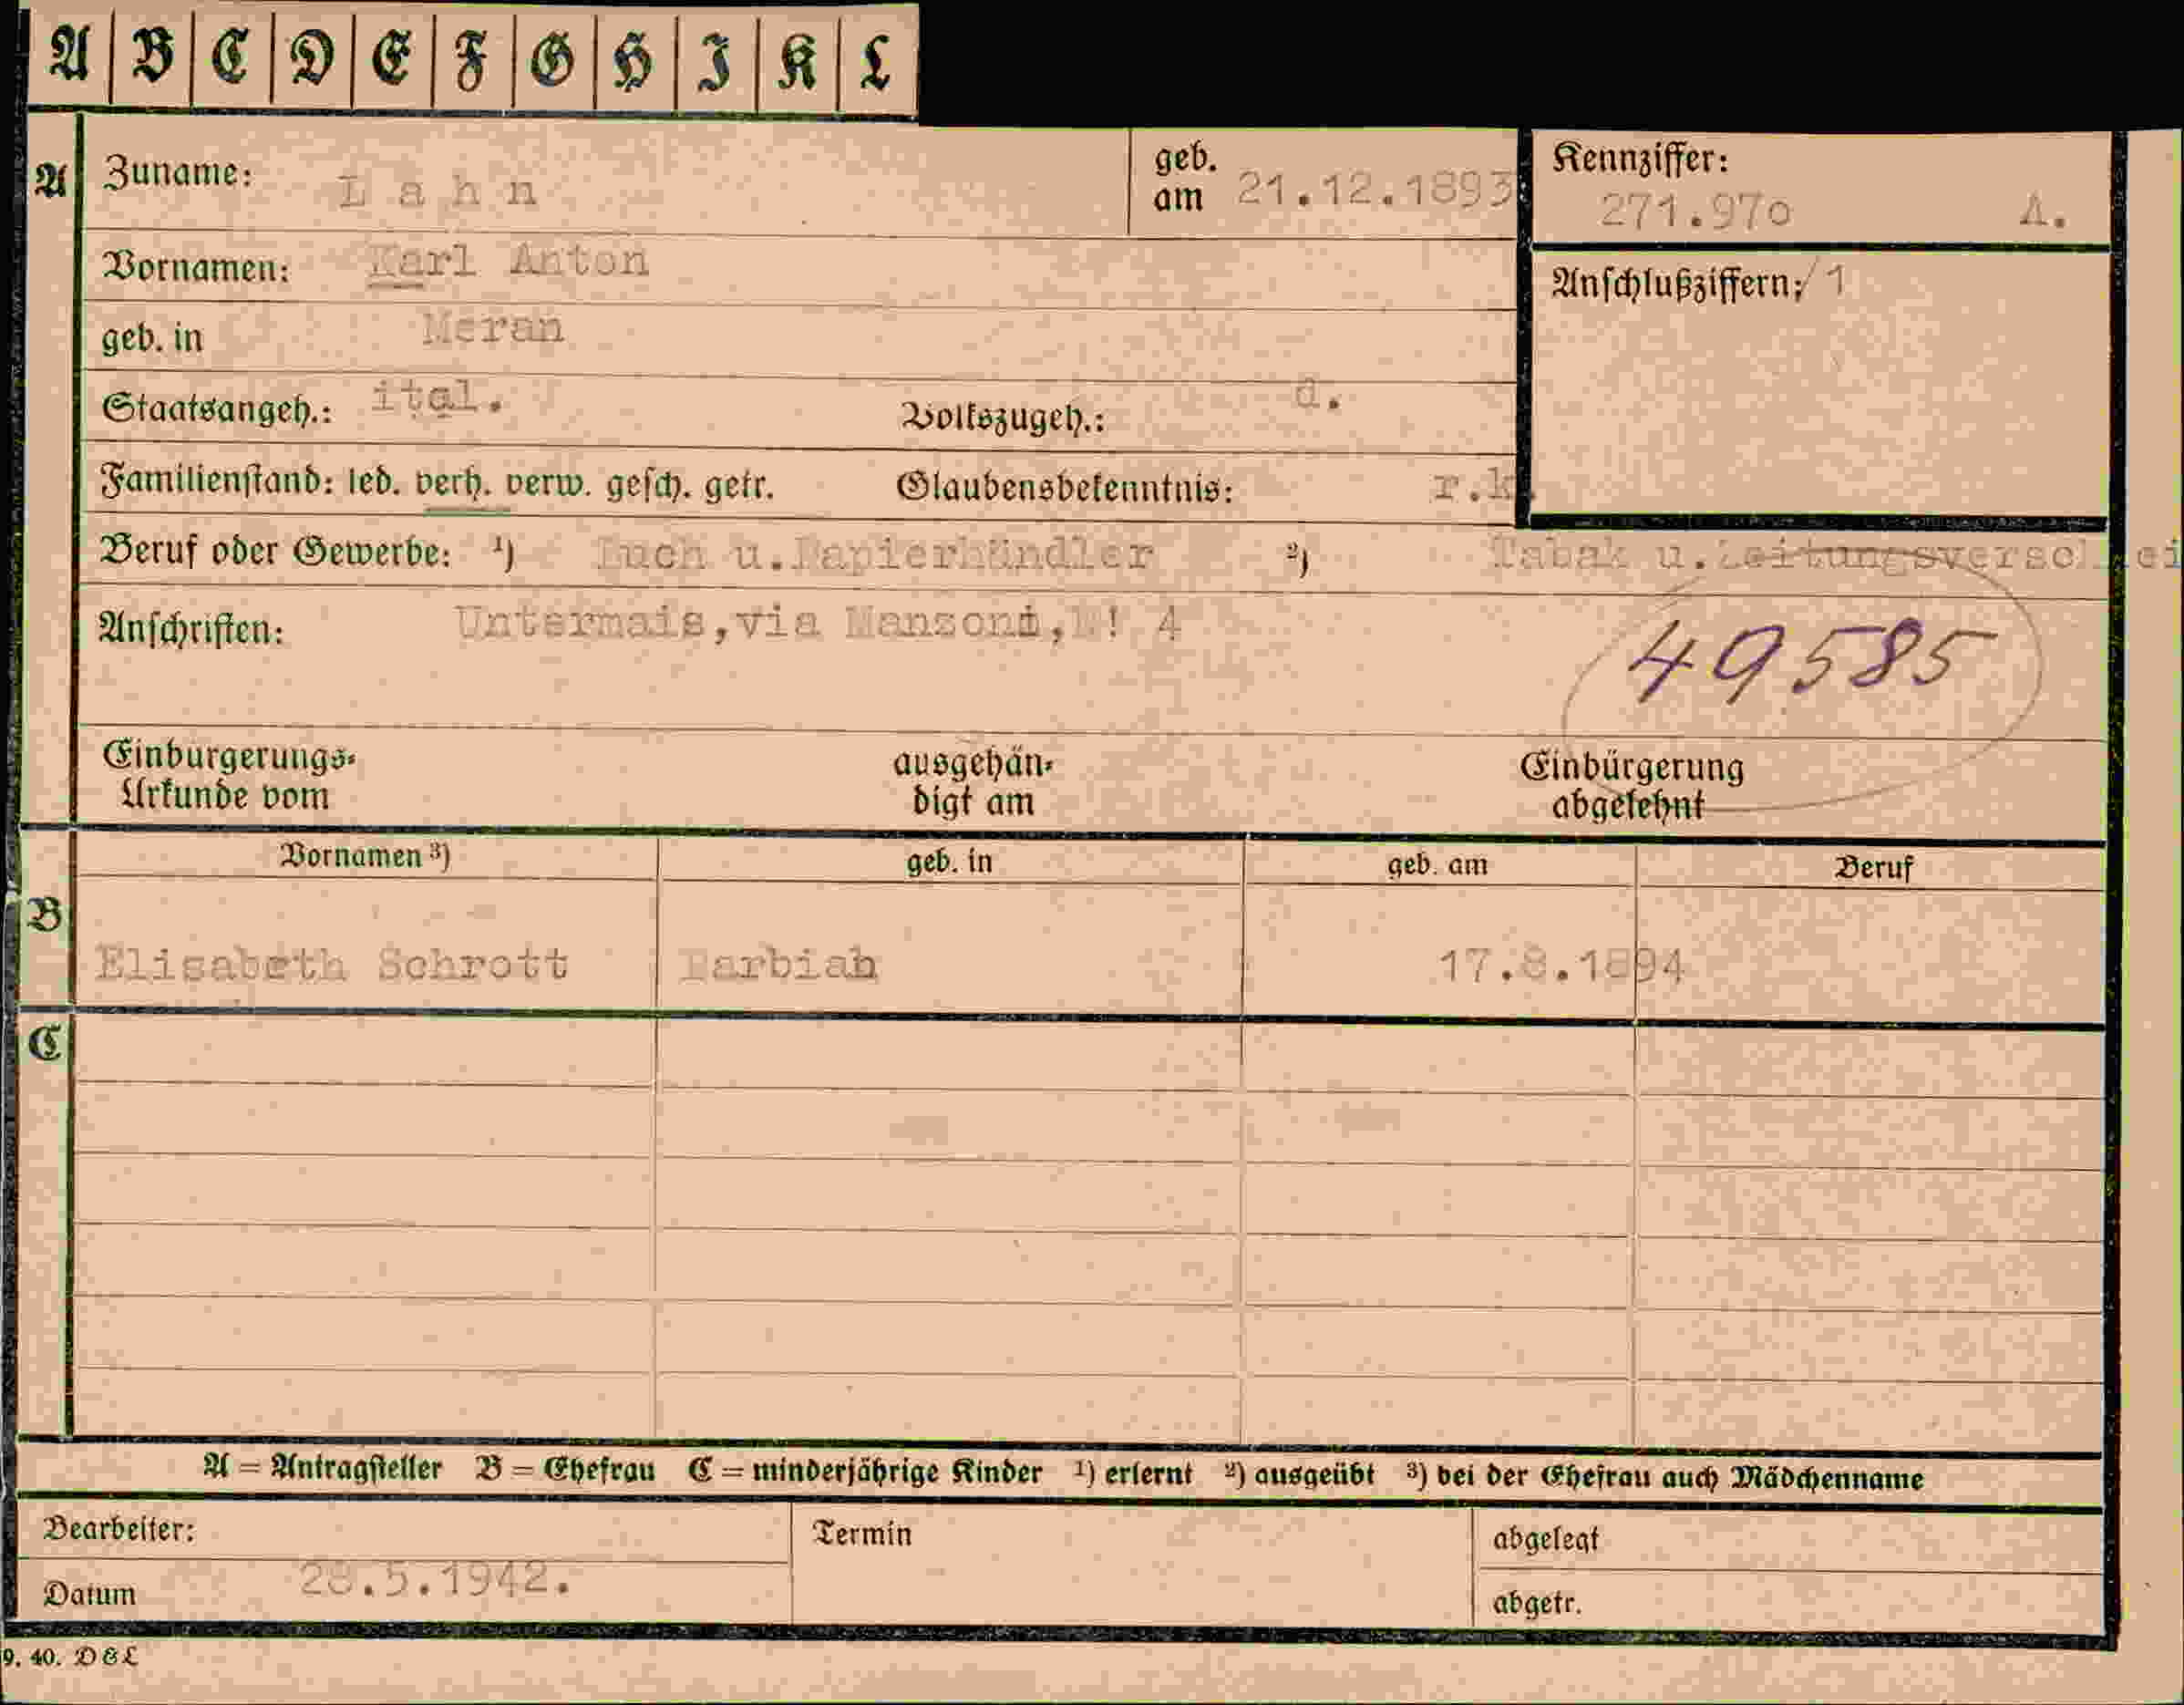 A B C D E F G H I K L
A
Zuname: Lahn
geb. am 21.12.1893
Kennziffer: 271.970 A.
Vornamen: Karl Anton
Anschlußziffern: / 1
geb. in Meran
Staatsangeh.: ital. Volkszugeh.: d.
Familienstand: led. verh. verw. gesch. getr. Glaubensbekenntnis: r.k.
Beruf oder Gewerbe: 1) Buch u. Papierhändler 2) Tabak u. Zeitungsverschlei
Anschriften: Untermais, via Manzoni, 4
49585
Einbürgerungs-Urkunde vom
ausgehändigt am
Einbürgerung abgelehnt
B
Vornamen 3) geb. in geb. am Beruf
Elisabeth Schrott Barbian 17.8.1894
C
A = Antragsteller B = Ehefrau C = minderjährige Kinder 1) erlernt 2) ausgeübt 3) bei der Ehefrau auch Mädchenname
Bearbeiter: Termin abgelegt
Datum 28.5.1942. abgetr.
9. 40. D&L